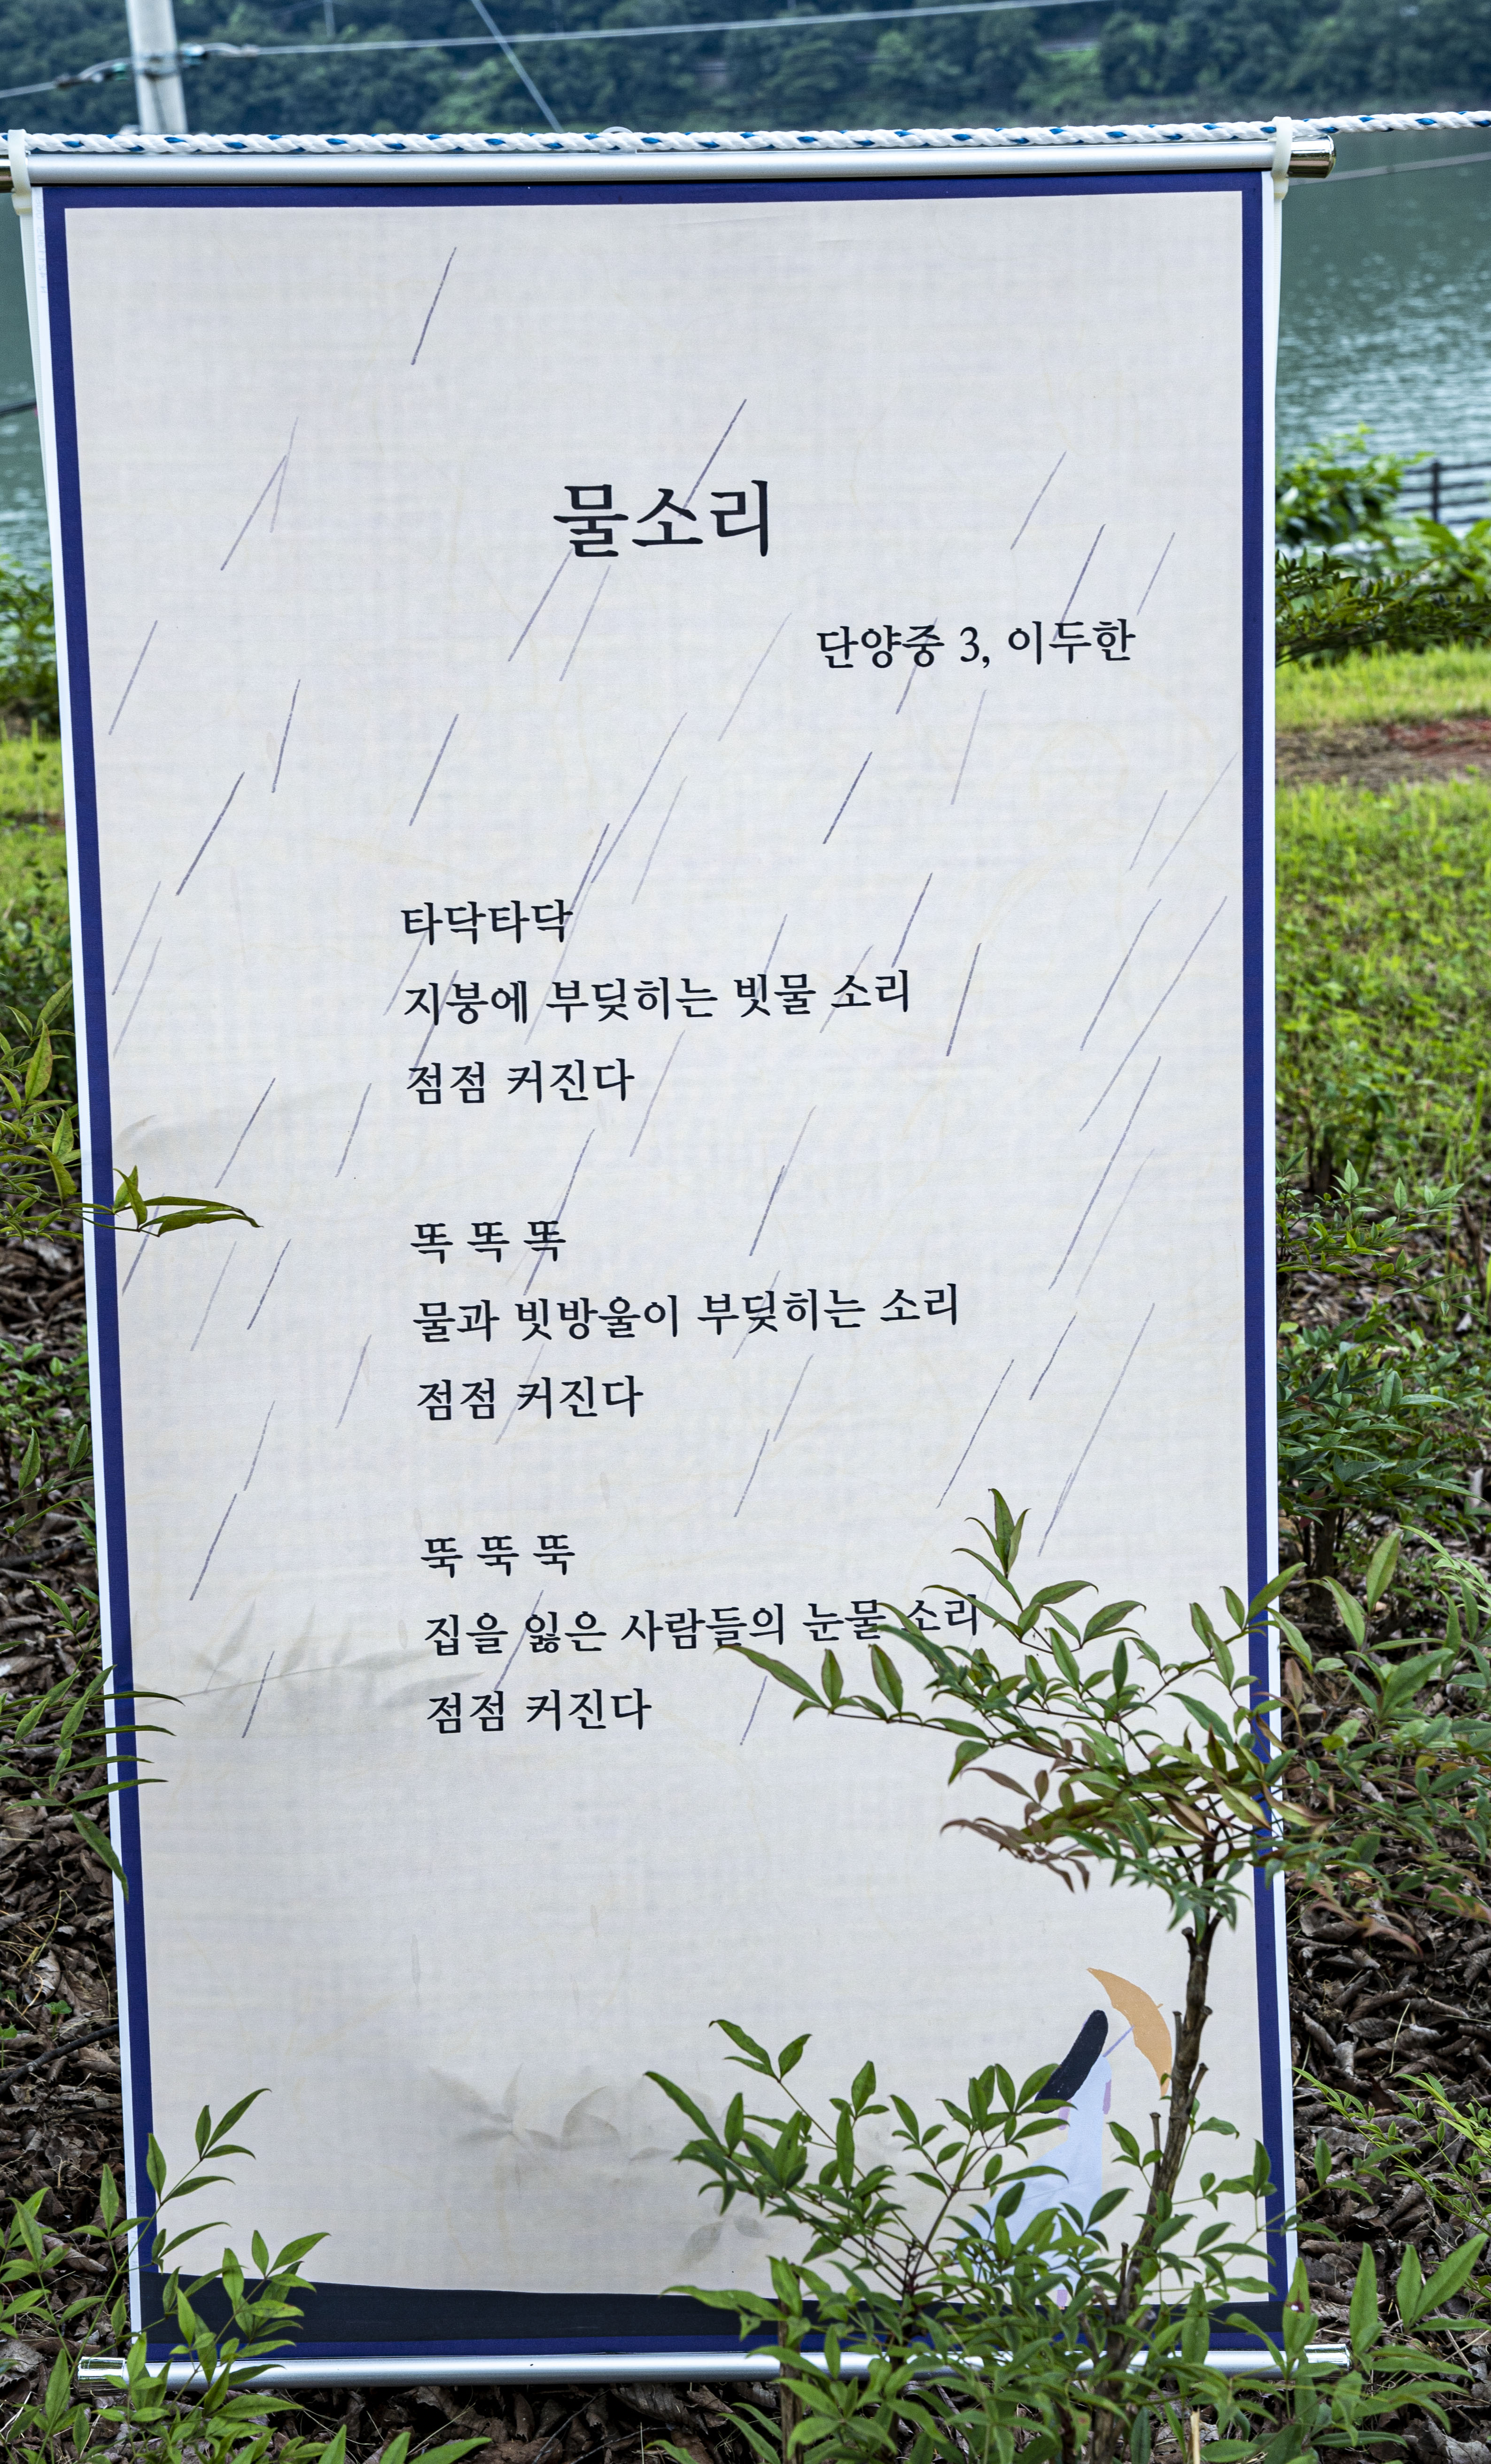 물소리
단양중 3, 이두한
타닥타닥
지붕에 부딪히는 빗물 소리
점점 커진다
똑 똑 똑
물과 빗방울이 부딪히는 소리
점점 커진다
뚝 뚝 뚝
집을 잃은 사람들의 눈물 소리
점점 커진다